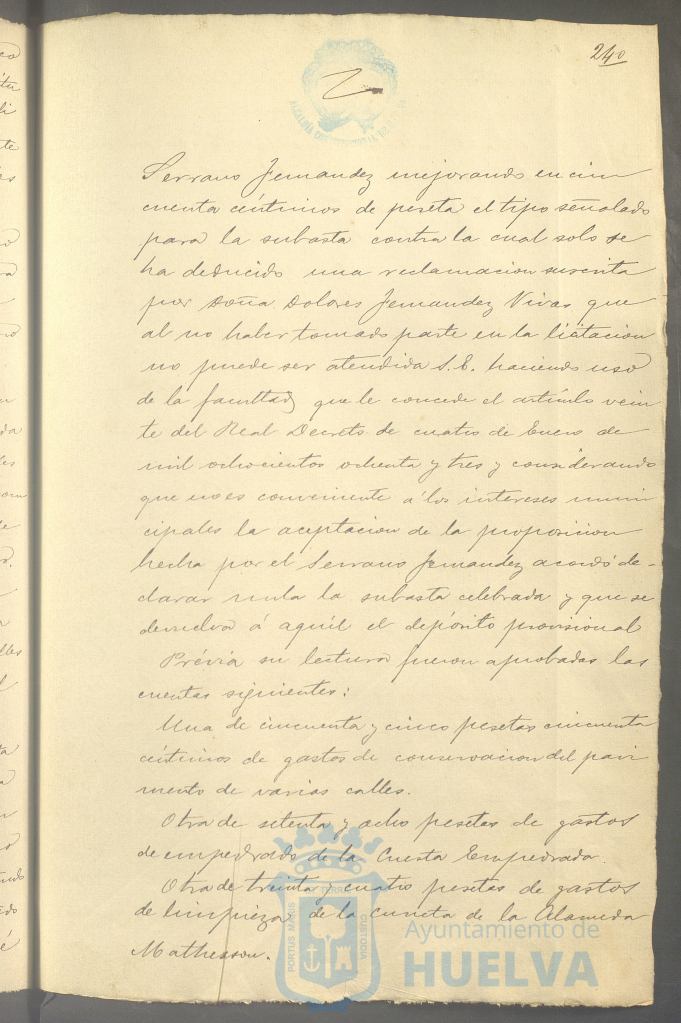 240
Serrano Fernandez mejorando en cin
cuenta céntimos de peseta el tipo señalado
para la subasta contra la cual solo se
ha deducido una reclamacion suscrita
por Doña Dolores Fernandez Vivas que
al no haber tomado parte en la licitacion
no puede ser atendida S. E. haciendo uso
de la facultad que le concede el artículo vein
te del Real Decreto de cuatro de Enero de
mil ochocientos ochenta y tres y considerando
que no es conveniente á los intereses muni
cipales la aceptacion de la proposicion
hecha por el Serrano Fernandez acordó de-
clarar nula la subasta celebrada y que se
devuelva á aquél el depósito provisional
Prévia su lectura fueron aprobadas las
cuentas siguientes:
Una de cincuenta y cinco pesetas cincuenta
céntimos de gastos de conservacion del pavi
mento de varias calles.
Otra de setenta y ocho pesetas de gastos
de empedrado de la Cuesta Empedrada.
Otra de treinta y cuatro pesetas de gastos
de limpieza de la cuneta de la Alameda
Mathesson.
PORTUS MARIS
CUSTODIA
Ayuntamiento de
HUELVA